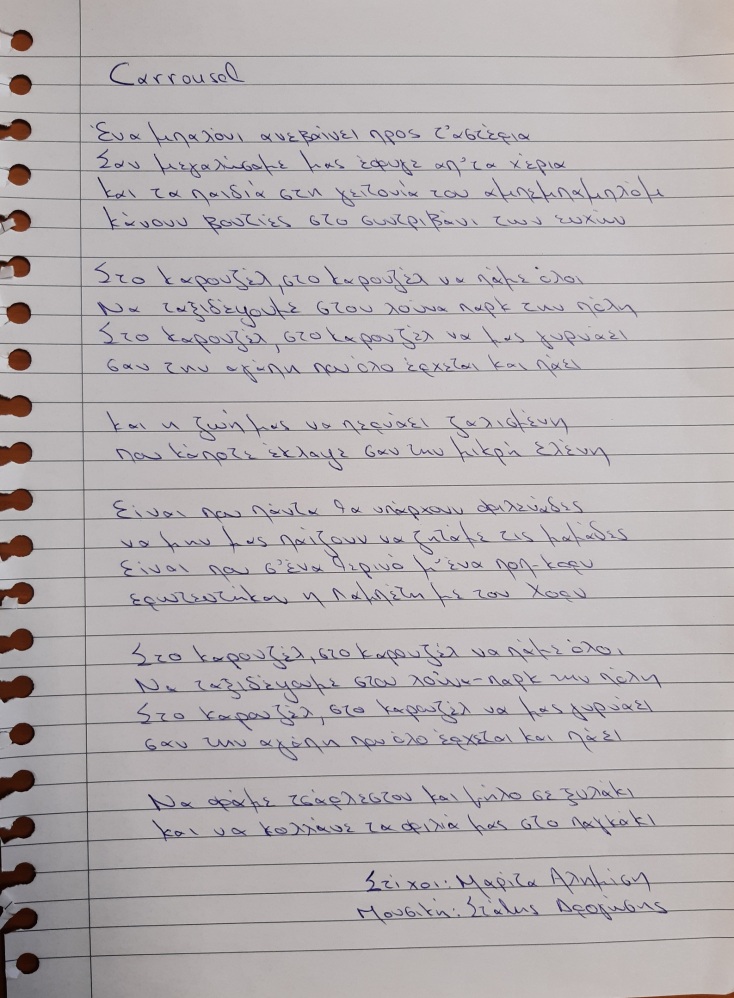 Carrousel
Ένα μπαλόνι ανεβαίνει προς τ'αστέρια
Σαν μεγαλώσαμε μας έφυγε απ'τα χέρια
και τα παιδιά στη γειτονιά του αμπεμπαμπλόμ
κάνουν βουτιές στο συντριβάνι των ευχών
Στο καρουζέλ, στο καρουζέλ να πάμε όλοι
Να ταξιδέψουμε στου λούνα παρκ την πόλη
Στο καρουζέλ, στο καρουζέλ να μας γυρνάει
σαν την αγάπη που όλο έρχεται και πάει
και η ζωή μας να περνάει ζαλισμένη
που κάποτε έκλαψε σαν την μικρή ελένη
Είναι που πάντα θα υπάρχουν φιλενάδες
να μην μας παίζουν να ζητάμε τις μαμάδες
Είναι που σ'ένα θερινό μ'ένα ποπ-κορν
ερωτευτήκαν η Λαμπέτη με τον Χορν
Στο καρουζέλ, στο καρουζέλ να πάμε όλοι
Να ταξιδέψουμε στου λούνα-παρκ την πόλη
Στο καρουζέλ, στο καρουζέλ να μας γυρνάει
σαν την αγάπη που όλο έρχεται και πάει
Να φάμε τσάρλεστον και μήλο σε ξυλάκι
και να κολλάνε τα φιλιά μας στο παγκάκι
Στίχοι: Μαρίζα
Μουσική: Στάθης Δρογώσης